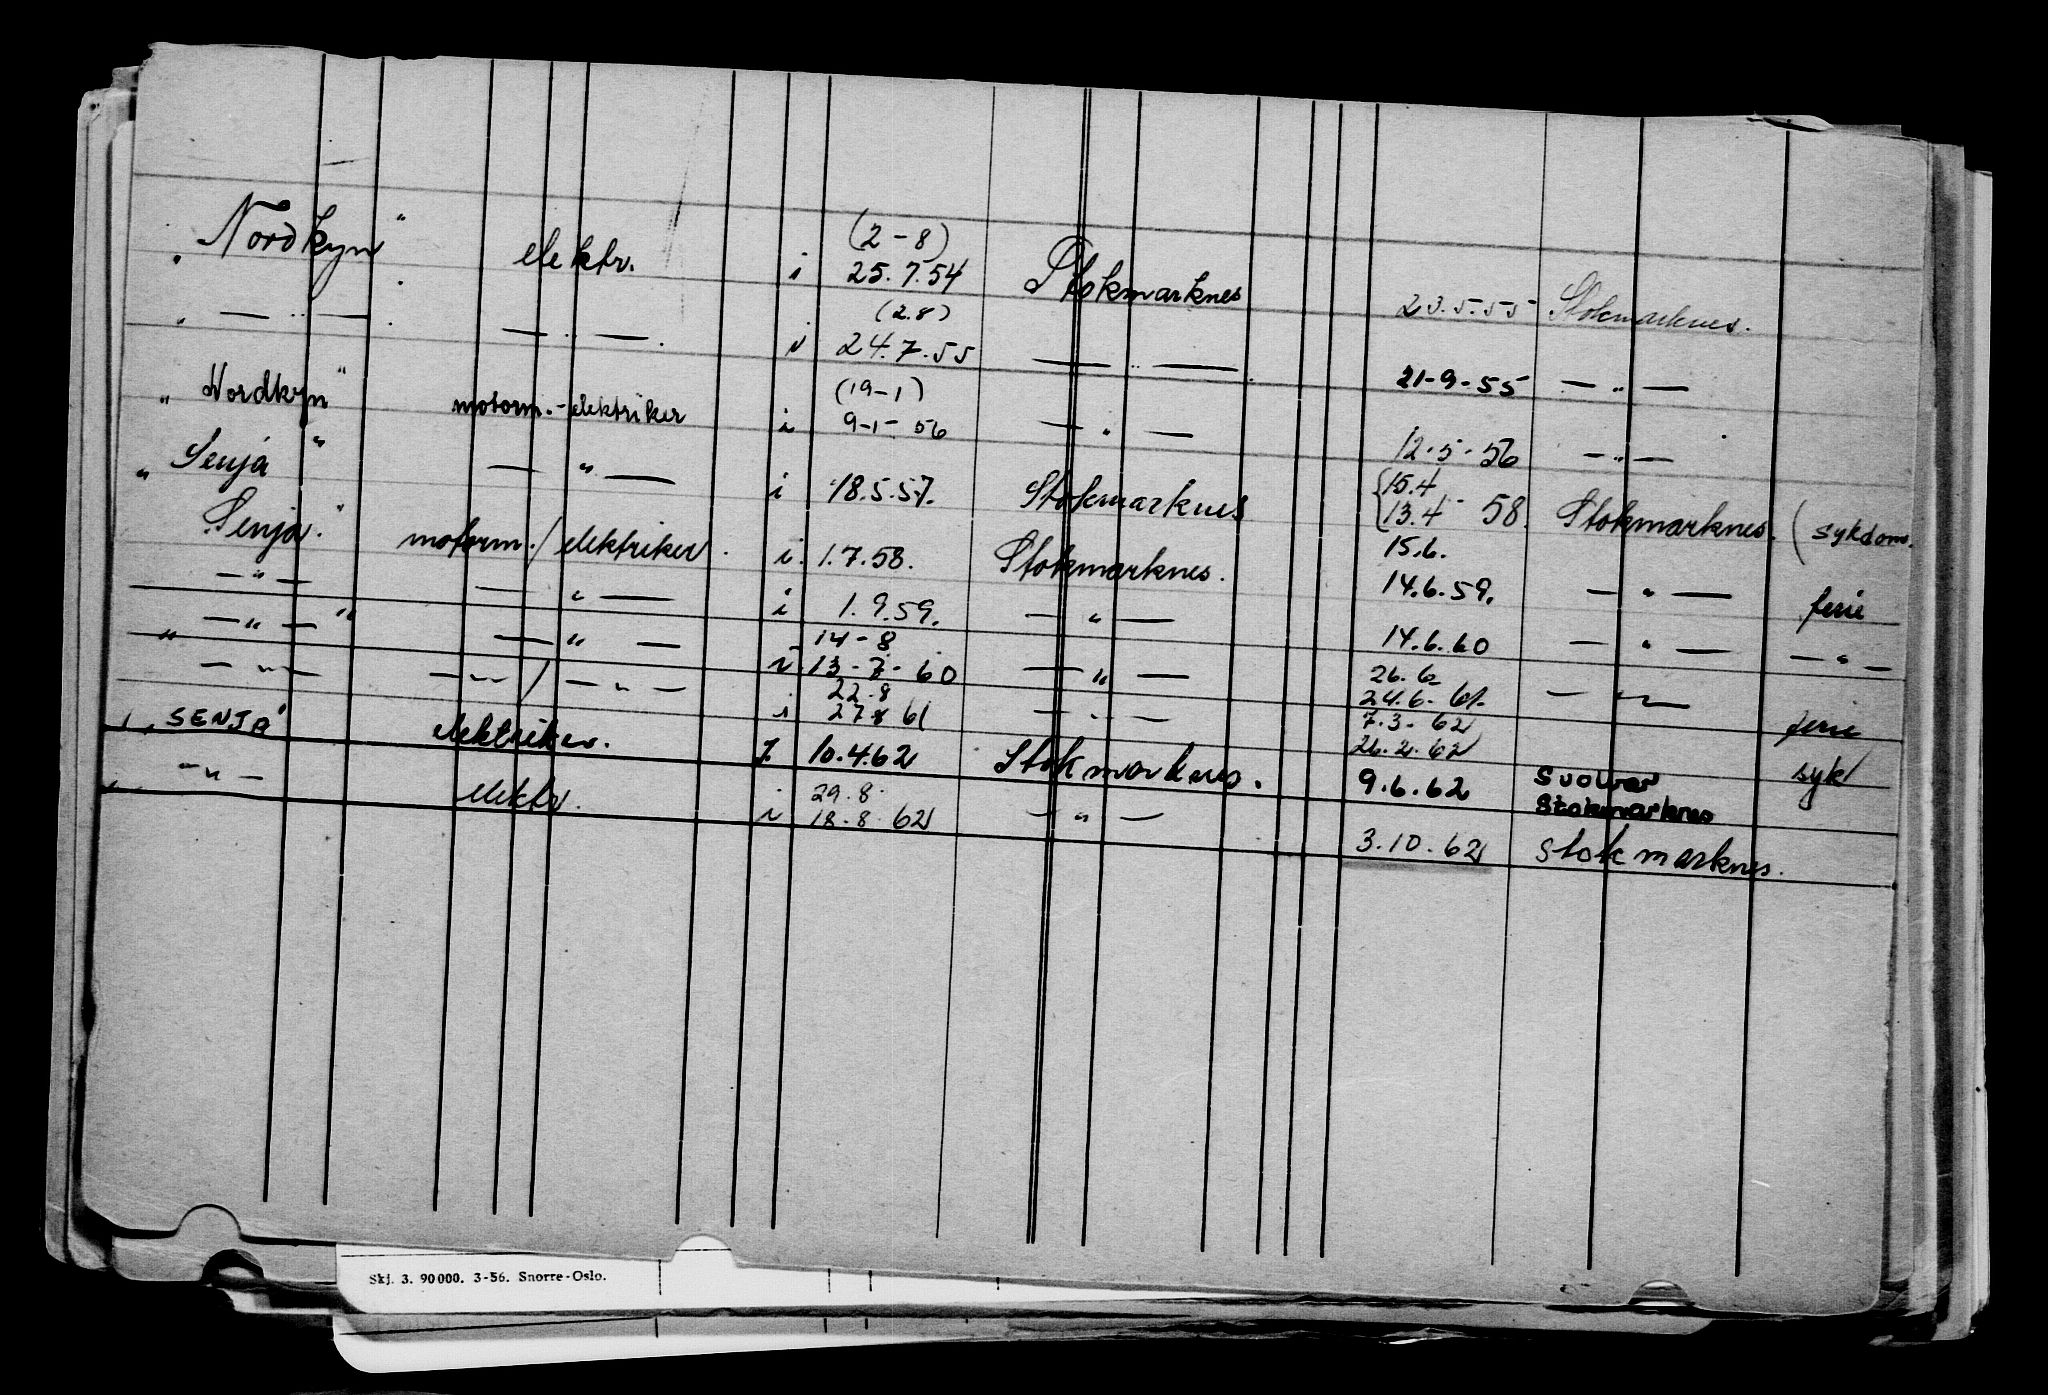 (2-8)
"Nordkyn" elektr. i 25.7.54 Stokmarknes 23.5.55 Stokmarknes.
(2.8)
" — " — . — " — . i 24.7.55 — " — . 21-9-55 — " —
(19-1)
"Nordkyn" motorm.-elektriker i 9-1-56 — " — 12-5-56 — " —
"Senja" — " — i 18.5.57. Stokmarknes { 15.4 13.4 - 58. Stokmarknes. ( sykdom.
"Senja." motorm./elektriker. i. 1.7.58. Stokmarknes. 15.6. 14.6.59. — " — ferie
— " — — " — i 1.9.59. — " — 14.6.60 — " — — " —
14-8 26.6
" — " — " — " — i. 13-7-60 — " — 24.6.61. — " — ferie
22.8 7.3.62
— " — — " — / — " — i 27.8 61 — " — 26.2.62 syk
"SENJA" elektriker. i 10.4.62 Stokmarknes. 9.6.62 Svolvær Stokmarknes
29.8.
" — " — elektr. i 18.8.62 — " — 3.10.62 Stokmarknes.
Skj. 3. 90000. 3-56. Snorre-Oslo.